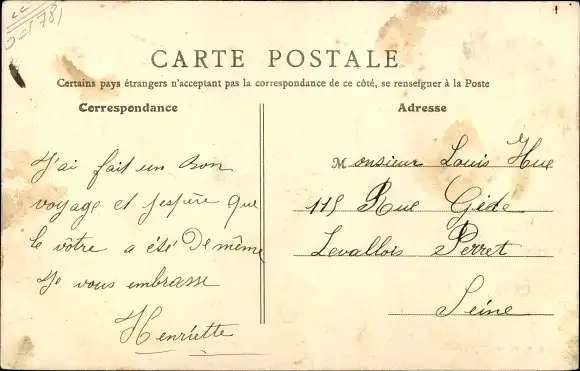 CARTE POSTALE
Certains pays étrangers n'acceptant pas la correspondance de ce côté, se renseigner à la Poste
Correspondance
J'ai fait un bon
voyage et j'espère que
le vôtre a été de même
Je vous embrasse
Henriette
Adresse
Monsieur Louis Hue
115 Rue Gide
Levallois Perret
Seine